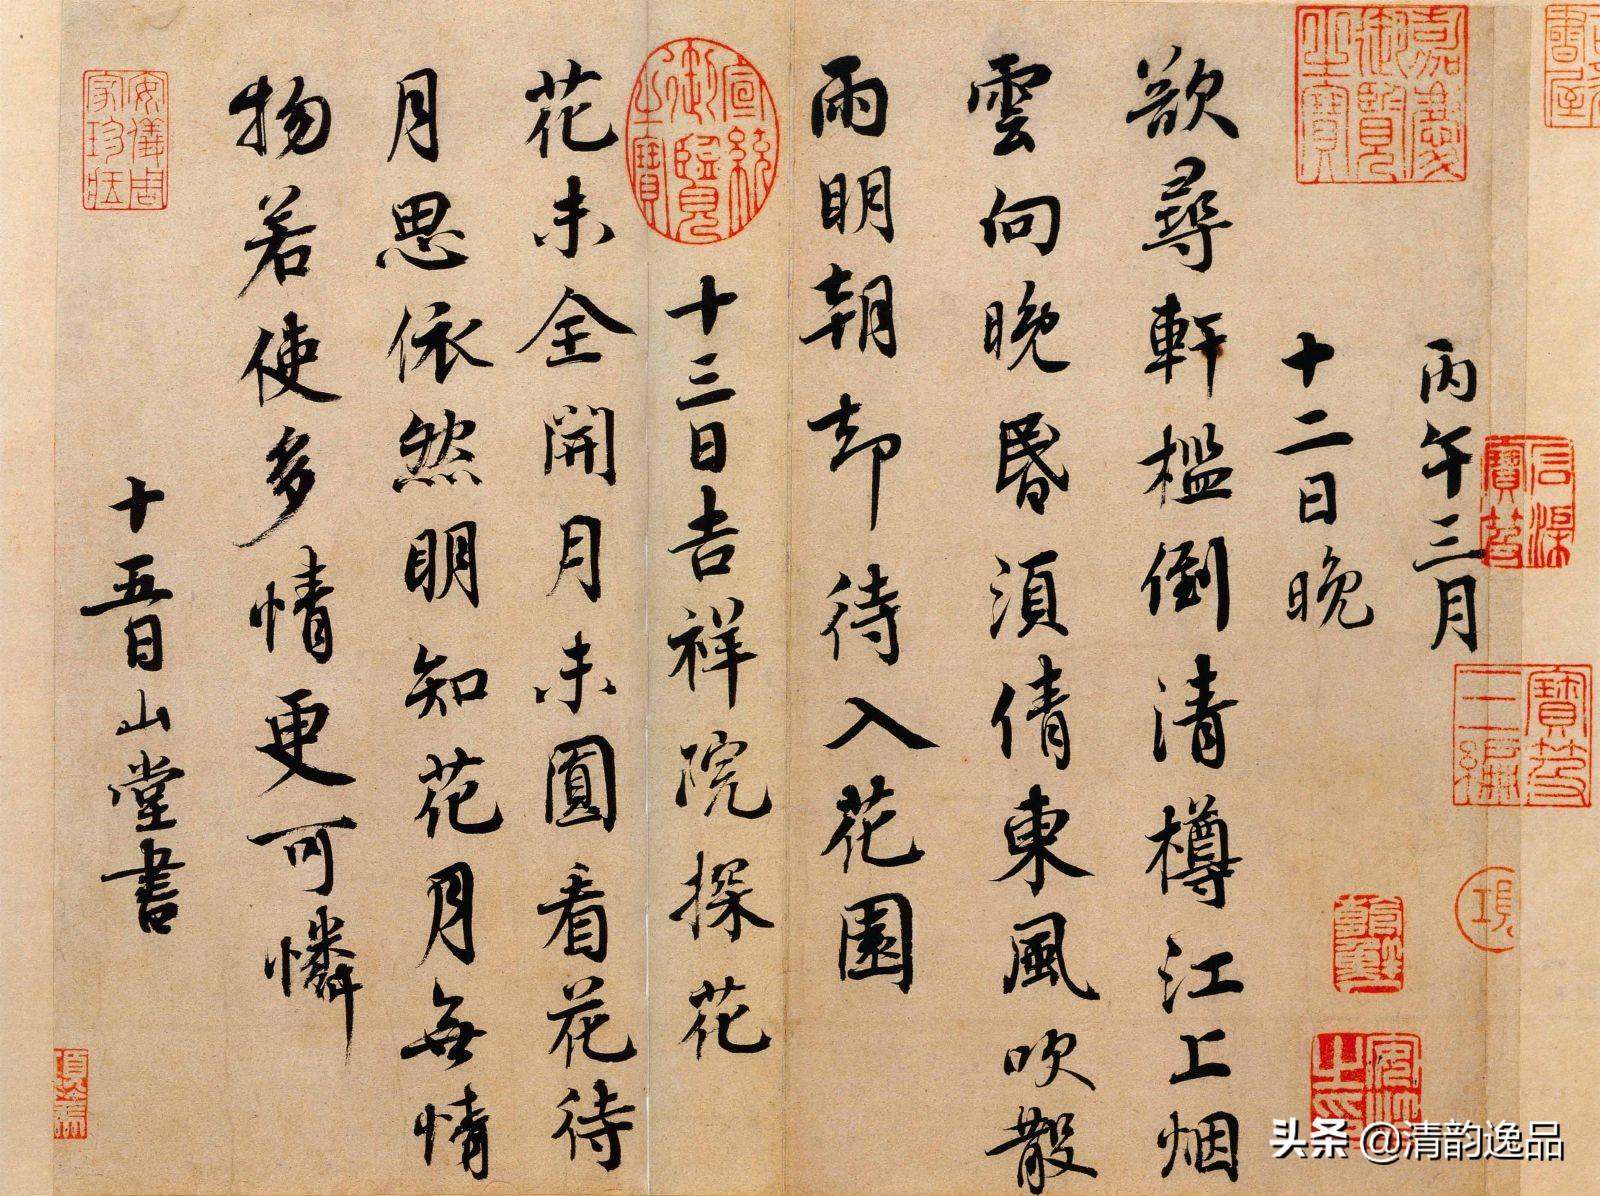 丙午三月
十二日晚
欲尋軒檻倒清樽江上烟
雲向晚昏須倩東風吹散
雨明朝却待入花園
十三日吉祥院探花
花未全開月未圓看花待
月思依然明知花月無情
物若使多情更可憐
十五日山堂書
嘉慶御覽之寶
宣統御覽之寶
安儀周家珍藏
頭条 @清韵逸品